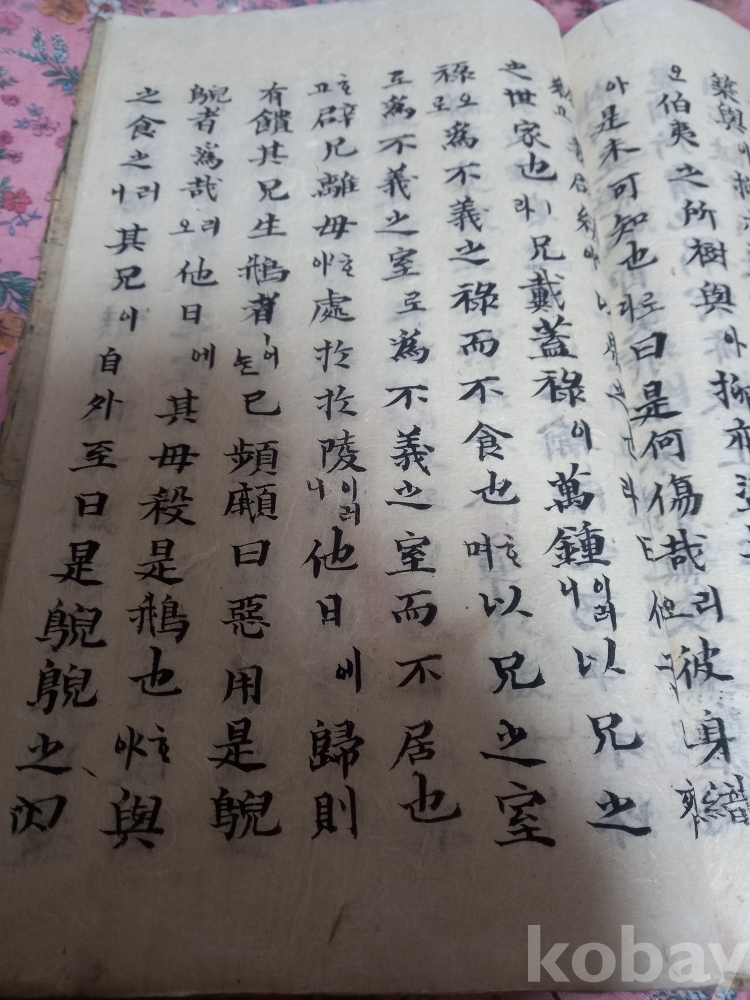 築與
오伯夷之所樹與아抑亦盜
아是未可知也로라曰是何傷哉리彼身
之世家也라兄戴蓋祿이萬鍾이러니以兄之
祿오로爲不義之祿而不食也ᄒᆞ며以兄之室
로爲不義之室로爲不義之室而不居也
ᄒᆞ고辟兄離母ᄒᆞ야處於於陵이러니他日에歸則
有饋其兄生鵝者어ᄂᆞᆯ已頻顣曰惡用是鶃
鶃者爲哉리오他日에其母殺是鵝也ᄒᆞ야與
之食之러니其兄이自外至曰是鶃鶃之肉
kobay